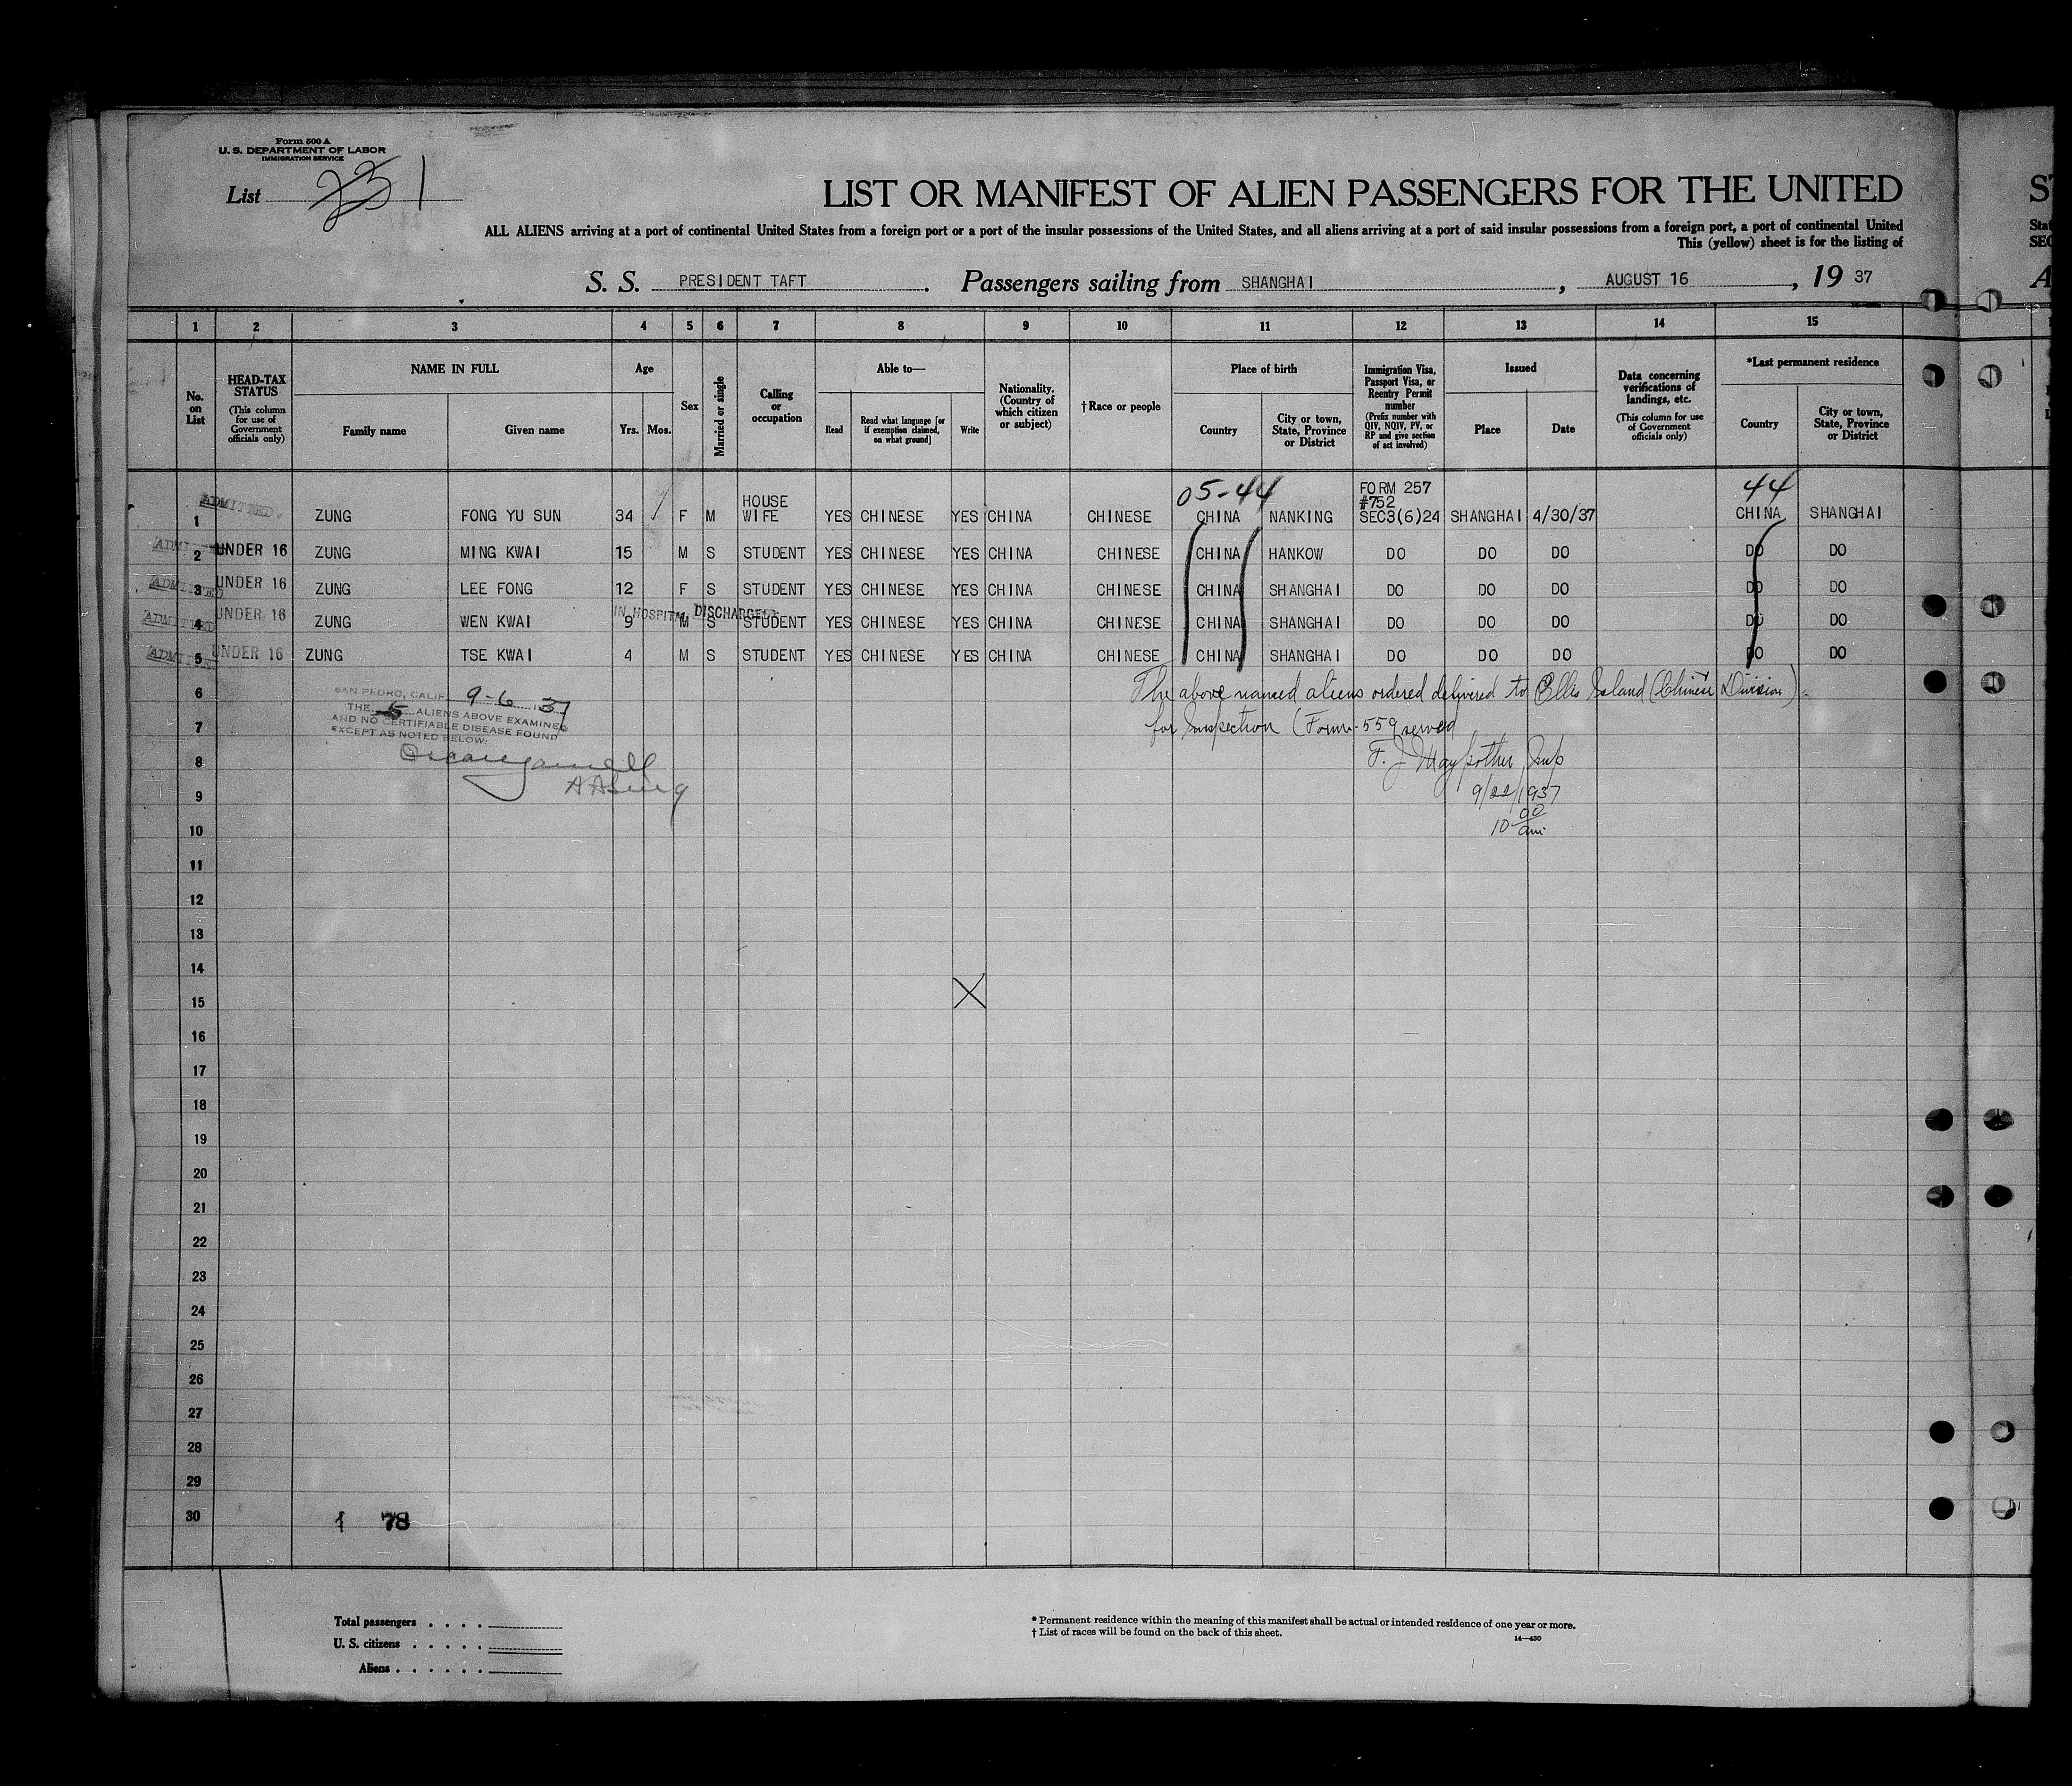 Form 500 A
U. S. DEPARTMENT OF LABOR
IMMIGRATION SERVICE
List 1
LIST OR MANIFEST OF ALIEN PASSENGERS FOR THE UNITED
ALL ALIENS arriving at a port of continental United States from a foreign port or a port of the insular possessions of the United States, and all aliens arriving at a port of said insular possessions from a foreign port, a port of continental United
This (yellow) sheet is for the listing of
S. S. PRESIDENT TAFT . Passengers sailing from SHANGHAI , AUGUST 16 , 19 37
1 2 3 4 5 6 7 8 9 10 11 12 13 14 15
No. on List
HEAD-TAX STATUS (This column for use of Government officials only)
NAME IN FULL
Family name Given name
Age
Yrs. Mos.
Sex
Married or single
Calling or occupation
Able to—
Read Read what language [or if exemption claimed, on what ground] Write
Nationality. (Country of which citizen or subject)
† Race or people
Place of birth
Country City or town, State, Province or District
Immigration Visa, Passport Visa, or Reentry Permit number (Prefix number with QIV, NQIV, PV, or RP and give section of act involved)
Issued
Place Date
Data concerning verifications of landings, etc. (This column for use of Government officials only)
*Last permanent residence
Country City or town, State, Province or District
05-44 44
ADMITTED. 1 ZUNG FONG YU SUN 34 F M HOUSE WIFE YES CHINESE YES CHINA CHINESE CHINA NANKING FORM 257 #752 SEC3(6)24 SHANGHAI 4/30/37 CHINA SHANGHAI
ADMITTED 2 UNDER 16 ZUNG MING KWAI 15 M S STUDENT YES CHINESE YES CHINA CHINESE CHINA HANKOW DO DO DO DO DO
ADMITTED 3 UNDER 16 ZUNG LEE FONG 12 F S STUDENT YES CHINESE YES CHINA CHINESE CHINA SHANGHAI DO DO DO DO DO
IN HOSPITAL DISCHARGED
ADMITTED 4 UNDER 16 ZUNG WEN KWAI 9 M S STUDENT YES CHINESE YES CHINA CHINESE CHINA SHANGHAI DO DO DO DO DO
ADMITTED 5 UNDER 16 ZUNG TSE KWAI 4 M S STUDENT YES CHINESE YES CHINA CHINESE CHINA SHANGHAI DO DO DO DO DO
The above named aliens ordered delivered to Ellis Island (Chinese Division)
for Inspection (Form-559 served
F. J. Maypother Insp
9/22/1937
10 00 am
SAN PEDRO, CALIF. 9-6 1937
THE 5 ALIENS ABOVE EXAMINED
AND NO CERTIFIABLE DISEASE FOUND
EXCEPT AS NOTED BELOW:
6
7
8
9
10
11
12
13
14
15
16
17
18
19
20
21
22
23
24
25
26
27
28
29
30
1 78
Total passengers
U. S. citizens
Aliens
* Permanent residence within the meaning of this manifest shall be actual or intended residence of one year or more.
† List of races will be found on the back of this sheet.
14—430